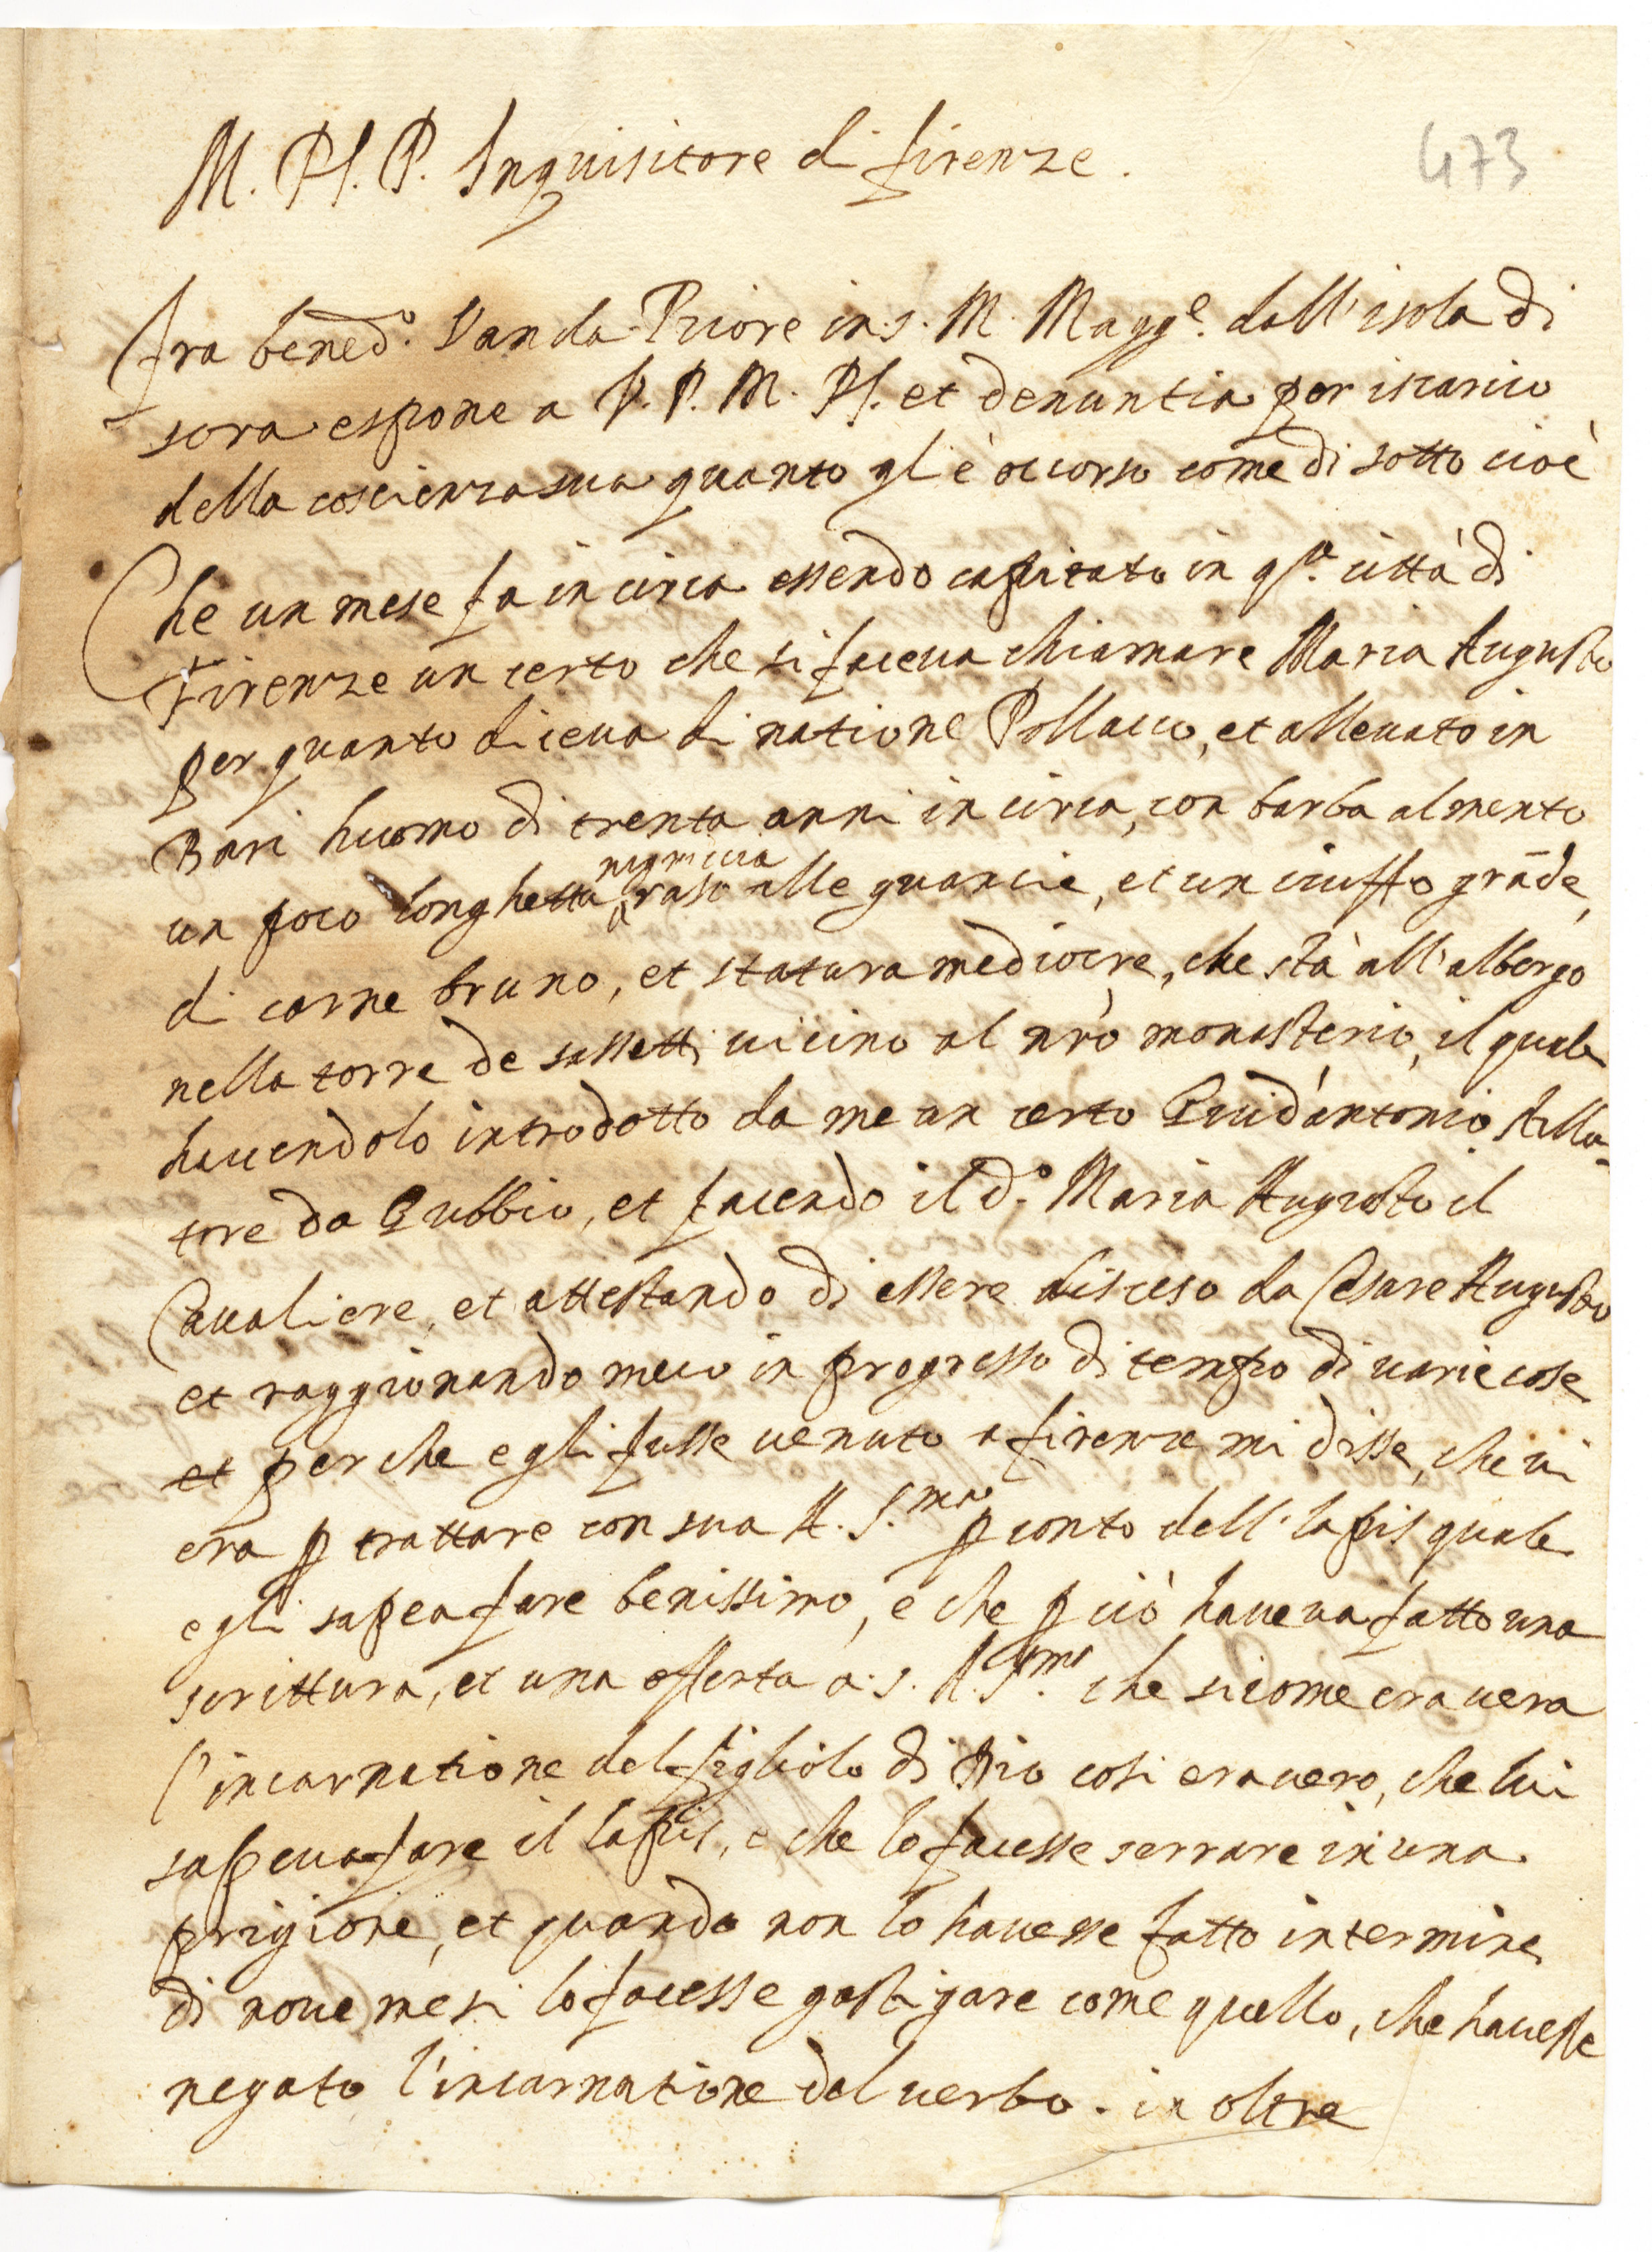 473
M. Rd. P. Inquisitore di firenze.
fra bened.o Vanda Priore in s. M. Magg.e dall'isola di
sora espone a V. P. M. Rd. et denuntia per iscarico
della coscienza sua quanto gl'è occorso come di sotto cioè
Che un mese fa in circa essendo capitato in q.ta città di
Firenze un certo che si faceva chiamare Maria Augusto
per quanto diceva di natione Pollacco, et allevato in
Bari huomo di trenta anni in circa, con barba al mento
un poco longhetta negricia raso alle guancie, et un ciuffo grāde,
di carne bruno, et statura mediocre, che stà all'albergo
nella torre de sassetti vicino al nrō monasterio, il quale
havendolo introdotto da me un certo Guid'antonio Stilla-
tore da Gubbio, et facendo il d.o Maria Augusto il
Cavaliere, et attestando di essere disceso da Cesare Augusto
et raggionando meco in progresso di tempo di varie cose
et perche egli fusse venuto a firenze mi disse, che vi
era p trattare con sua A. S.ma p conto dell'lapis quale
egli sapea fare benissimo, e che p ciò haveva fatto una
scrittura, et una offerta a. s. A. S.ma che sicome era vera
l'incarnatione del figliolo di Dio cosi era vero, che lui
sapeva fare il lapis, e che lo facesse serrare in una
prigione, et quando non lo havesse fatto in termine
di nove mesi lo facesse gastigare come quello, che havesse
negato l'incarnatione del verbo. in oltre